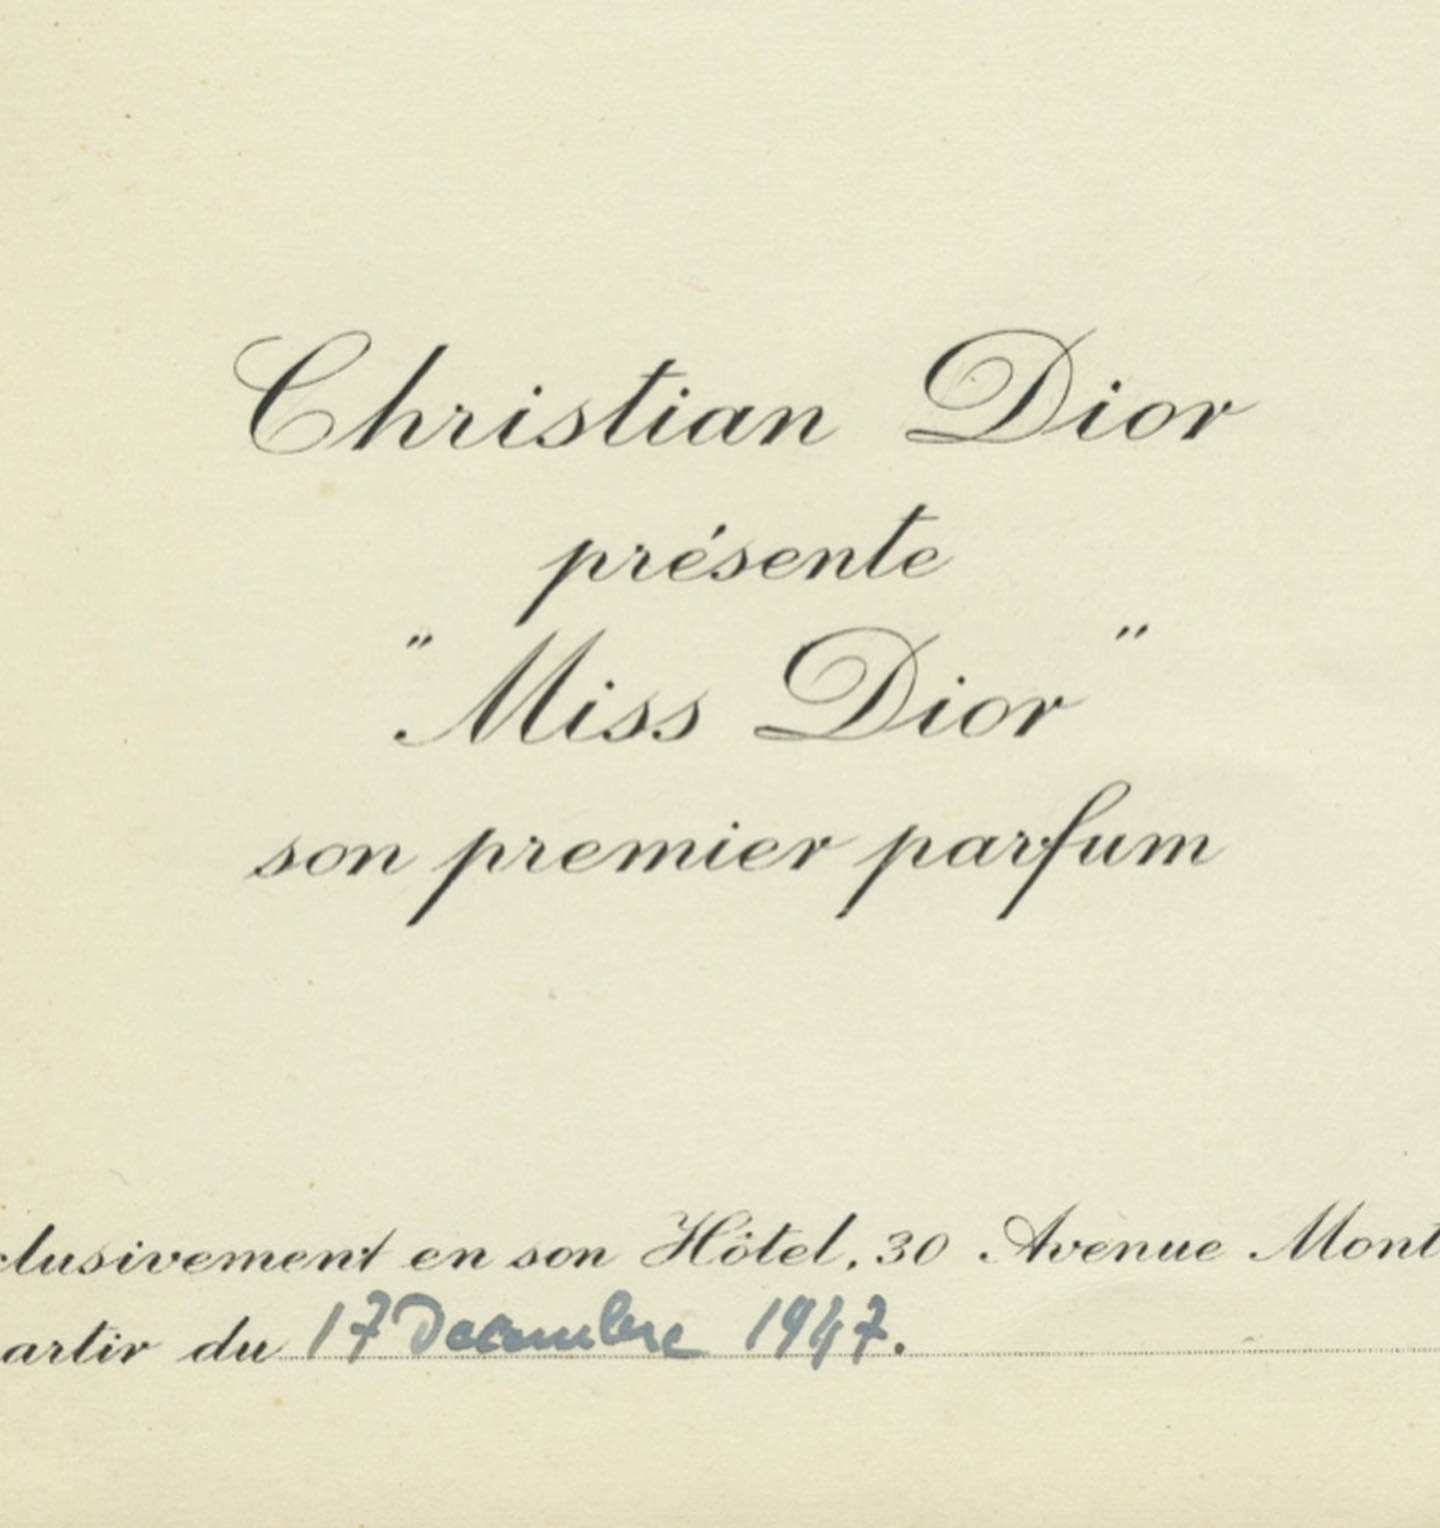 Christian Dior
présente
"Miss Dior"
son premier parfum
clusivement en son Hôtel, 30 Avenue Mont
artir du 17 Decembre 1947.